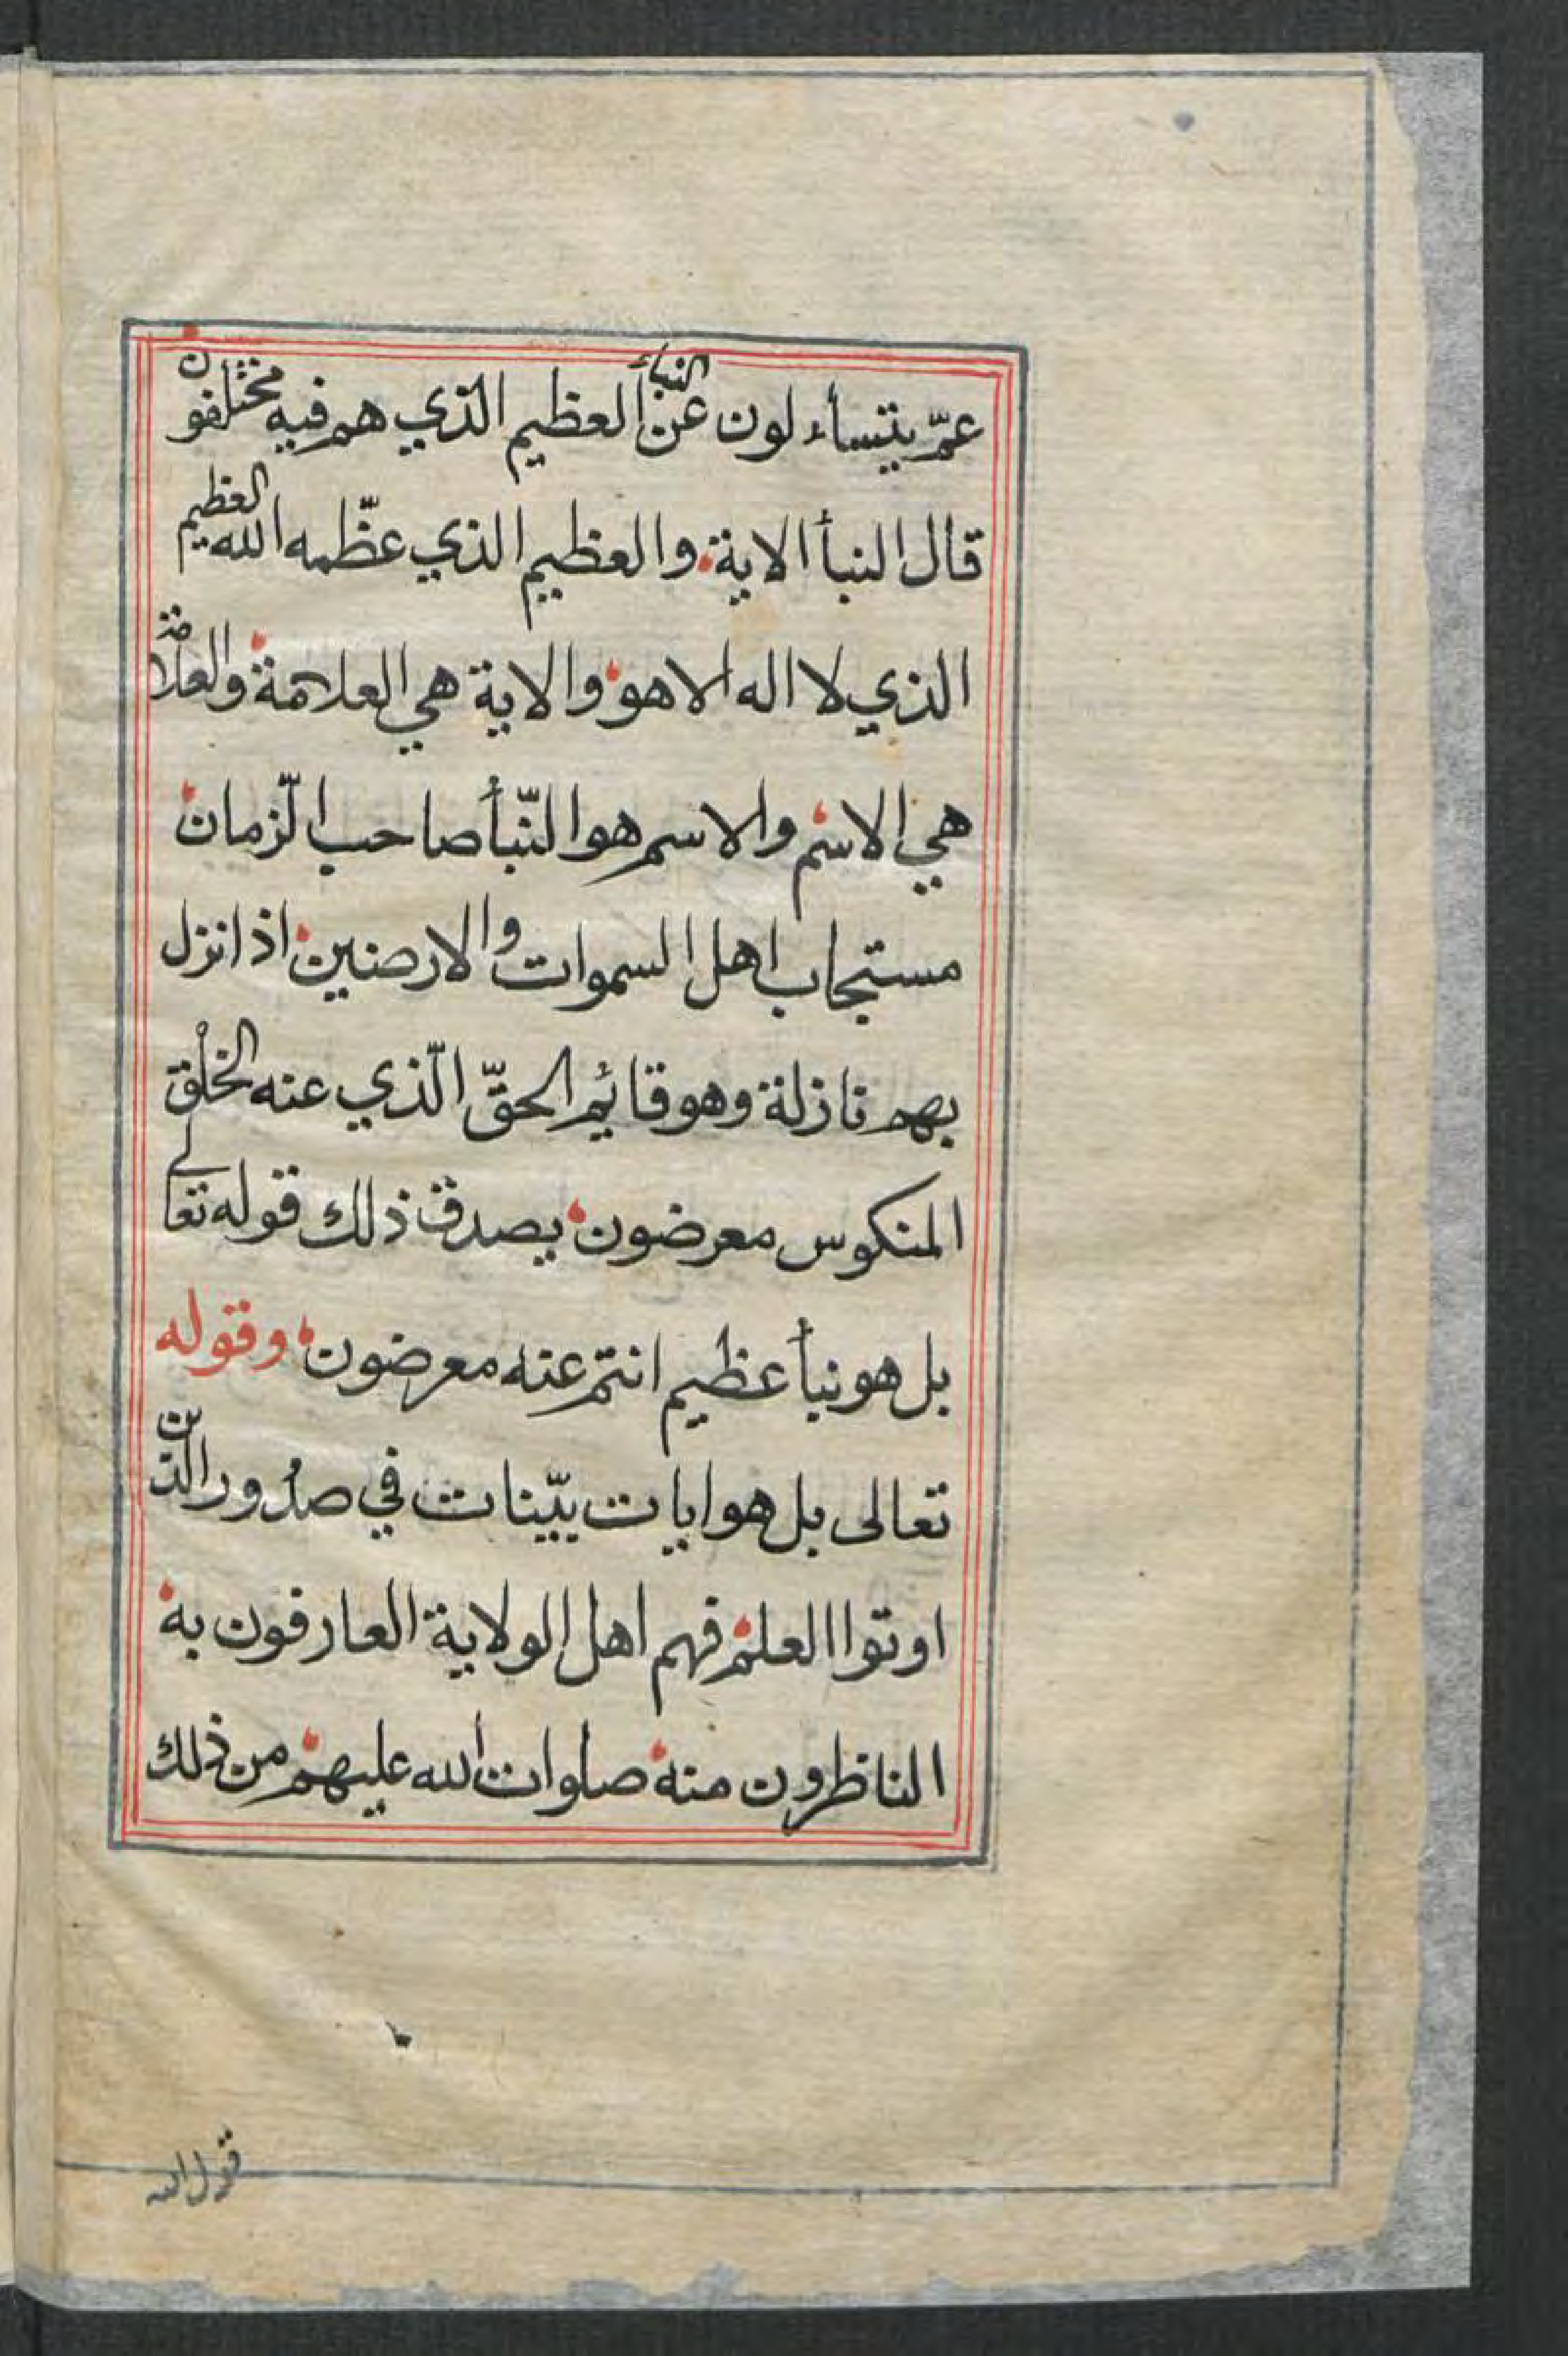 عمّ يتسآء لون عن النبأ العظيم الذي هم فيه مختلفون
قال النبأ الاية والعظيم الذي عظّمه الله العظيم
الذي لا اله الا هو والاية هي العلامة والعلامة
هي الاسم والاسم هو النّبأ صاحب الزّمان
مستجاب اهل السموات والارضين اذا نزل
بهم نازلة وهو قائيم الحقّ الّذي عنه الخلْق
المنكوس معرضون يصدق ذلك قوله تعالى
بل هو نبأ عظيم انتم عنه معرضون وقوله
تعالى بل هو ايات بيّنات في صدُور الّذين
اوتوا العلم فهم اهل الولاية العارفون به
الناظرون منه صلوات الله عليهم من ذلك
قول الله